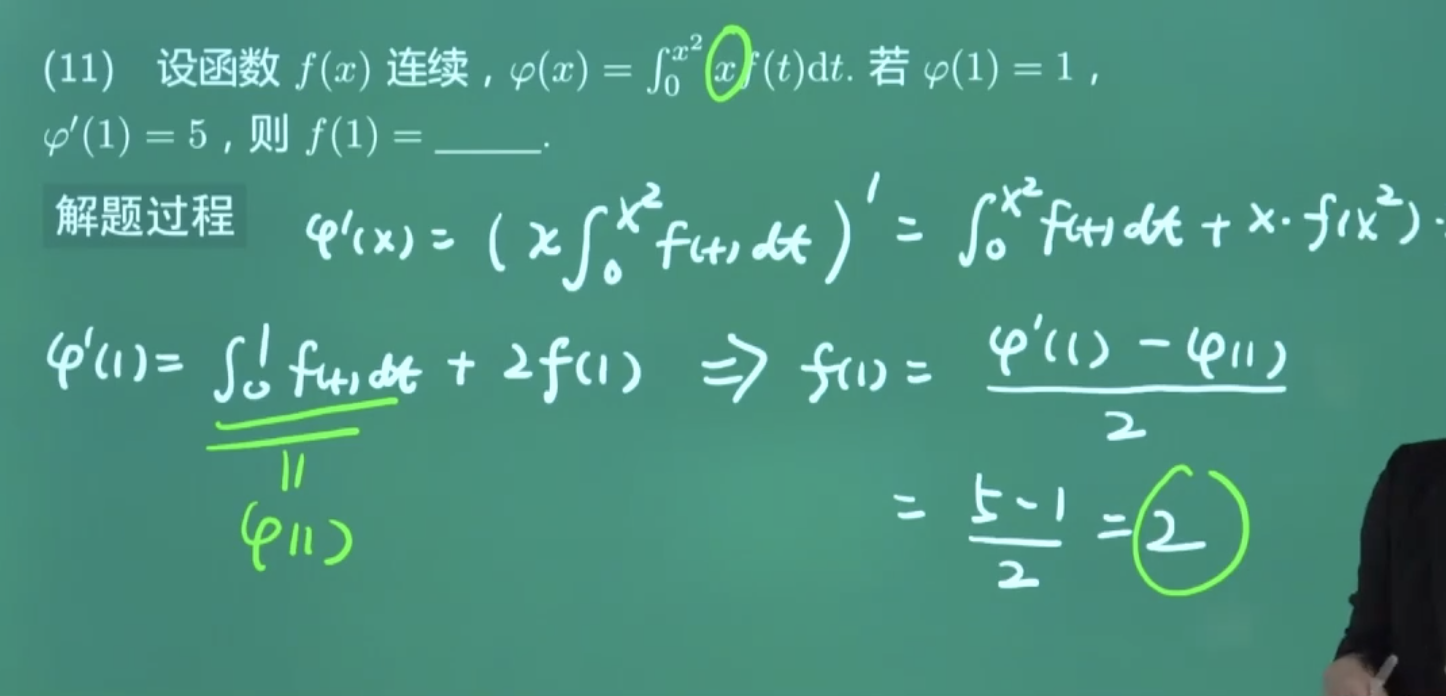 (11) 设函数 f(x) 连续，φ(x) = ∫₀^{x²} xf(t)dt. 若 φ(1) = 1，
φ′(1) = 5，则 f(1) = ______.
解题过程 φ′(x) = (x∫₀^{x²} f(t)dt)′ = ∫₀^{x²} f(t)dt + x·f(x²)·
φ′(1) = ∫₀¹ f(t)dt + 2f(1) ⇒ f(1) = (φ′(1) − φ(1))/2
|| = (5−1)/2 = 2
φ(1)